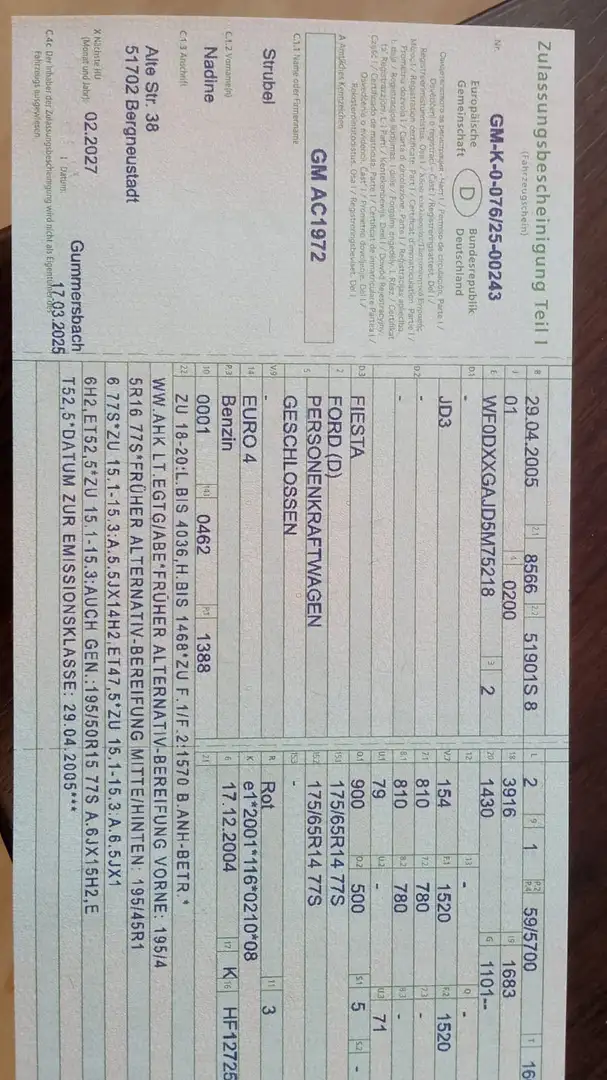 Zulassungsbescheinigung Teil I
(Fahrzeugschein)
Nr.
GM-K-0-076/25-00243
Europäische
Gemeinschaft
D
Bundesrepublik
Deutschland
A Amtliches Kennzeichen
GM AC1972
C.1.1 Name oder Firmenname
Strubel
C.1.2 Vorname(n)
Nadine
C.1.3 Anschrift
Alte Str. 38
51702 Bergneustadt
X Nächste HU
(Monat und Jahr)
02.2027
I Datum:
Gummersbach
17.03.2025
C.4c Der Inhaber der Zulassungsbescheinigung wird nicht als Eigentümer des
Fahrzeugs ausgewiesen.
B 29.04.2005 2.1 8566 2.2 51901S 8
J 01 4 0200
E WF0DXXGAJD5M75218 3 2
D.1 -
JD3
D.2 -
-
D.3 FIESTA
2 FORD (D)
5 PERSONENKRAFTWAGEN
GESCHLOSSEN
V.9 -
14 EURO 4
P.3 Benzin
10 0001 14.1 0462 P.1 1388
22 ZU 18-20:L.BIS 4036,H.BIS 1468*ZU F.1/F.2:1570 B.ANH-BETR.*
WW.AHK LT.EGTG/ABE*FRÜHER ALTERNATIV-BEREIFUNG VORNE: 195/4
5R16 77S*FRÜHER ALTERNATIV-BEREIFUNG MITTE/HINTEN: 195/45R1
6 77S*ZU 15.1-15.3:A.5.5JX14H2,ET47,5*ZU 15.1-15.3:A.6.5JX1
6H2,ET52,5*ZU 15.1-15.3:AUCH GEN.:195/50R15 77S A.6JX15H2,E
T52,5*DATUM ZUR EMISSIONSKLASSE: 29.04.2005***
L 2 9 1 P.2 P.4 59/5700 T 16
18 3916 19 1683
20 1430 G 1101--
12 - 13 - Q -
V.7 154 F.1 1520 F.2 1520
7.1 810 7.2 780 7.3 -
8.1 810 8.2 780 8.3 -
U.1 79 U.2 - U.3 71
O.1 900 O.2 500 S.1 5 S.2 -
15.1 175/65R14 77S
15.2 175/65R14 77S
15.3 -
R Rot 11 3
K e1*2001*116*0210*08
6 17.12.2004 17 K 16 HF12725
21